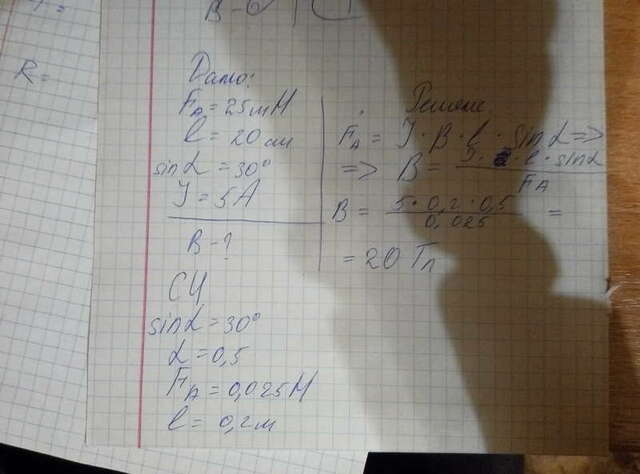 R =
В-
Дано:
Fₐ = 25 мН
l = 20 см
sin α = 30°
J = 5 А
В - ?
СИ
sin α = 30°
α = 0,5
Fₐ = 0,025 Н
l = 0,2 м
Решение
Fₐ = J · B · l · sin α =>
=> B = 5 · l · sin α / Fₐ
B = 5 · 0,2 · 0,5 / 0,025 =
= 20 Тл